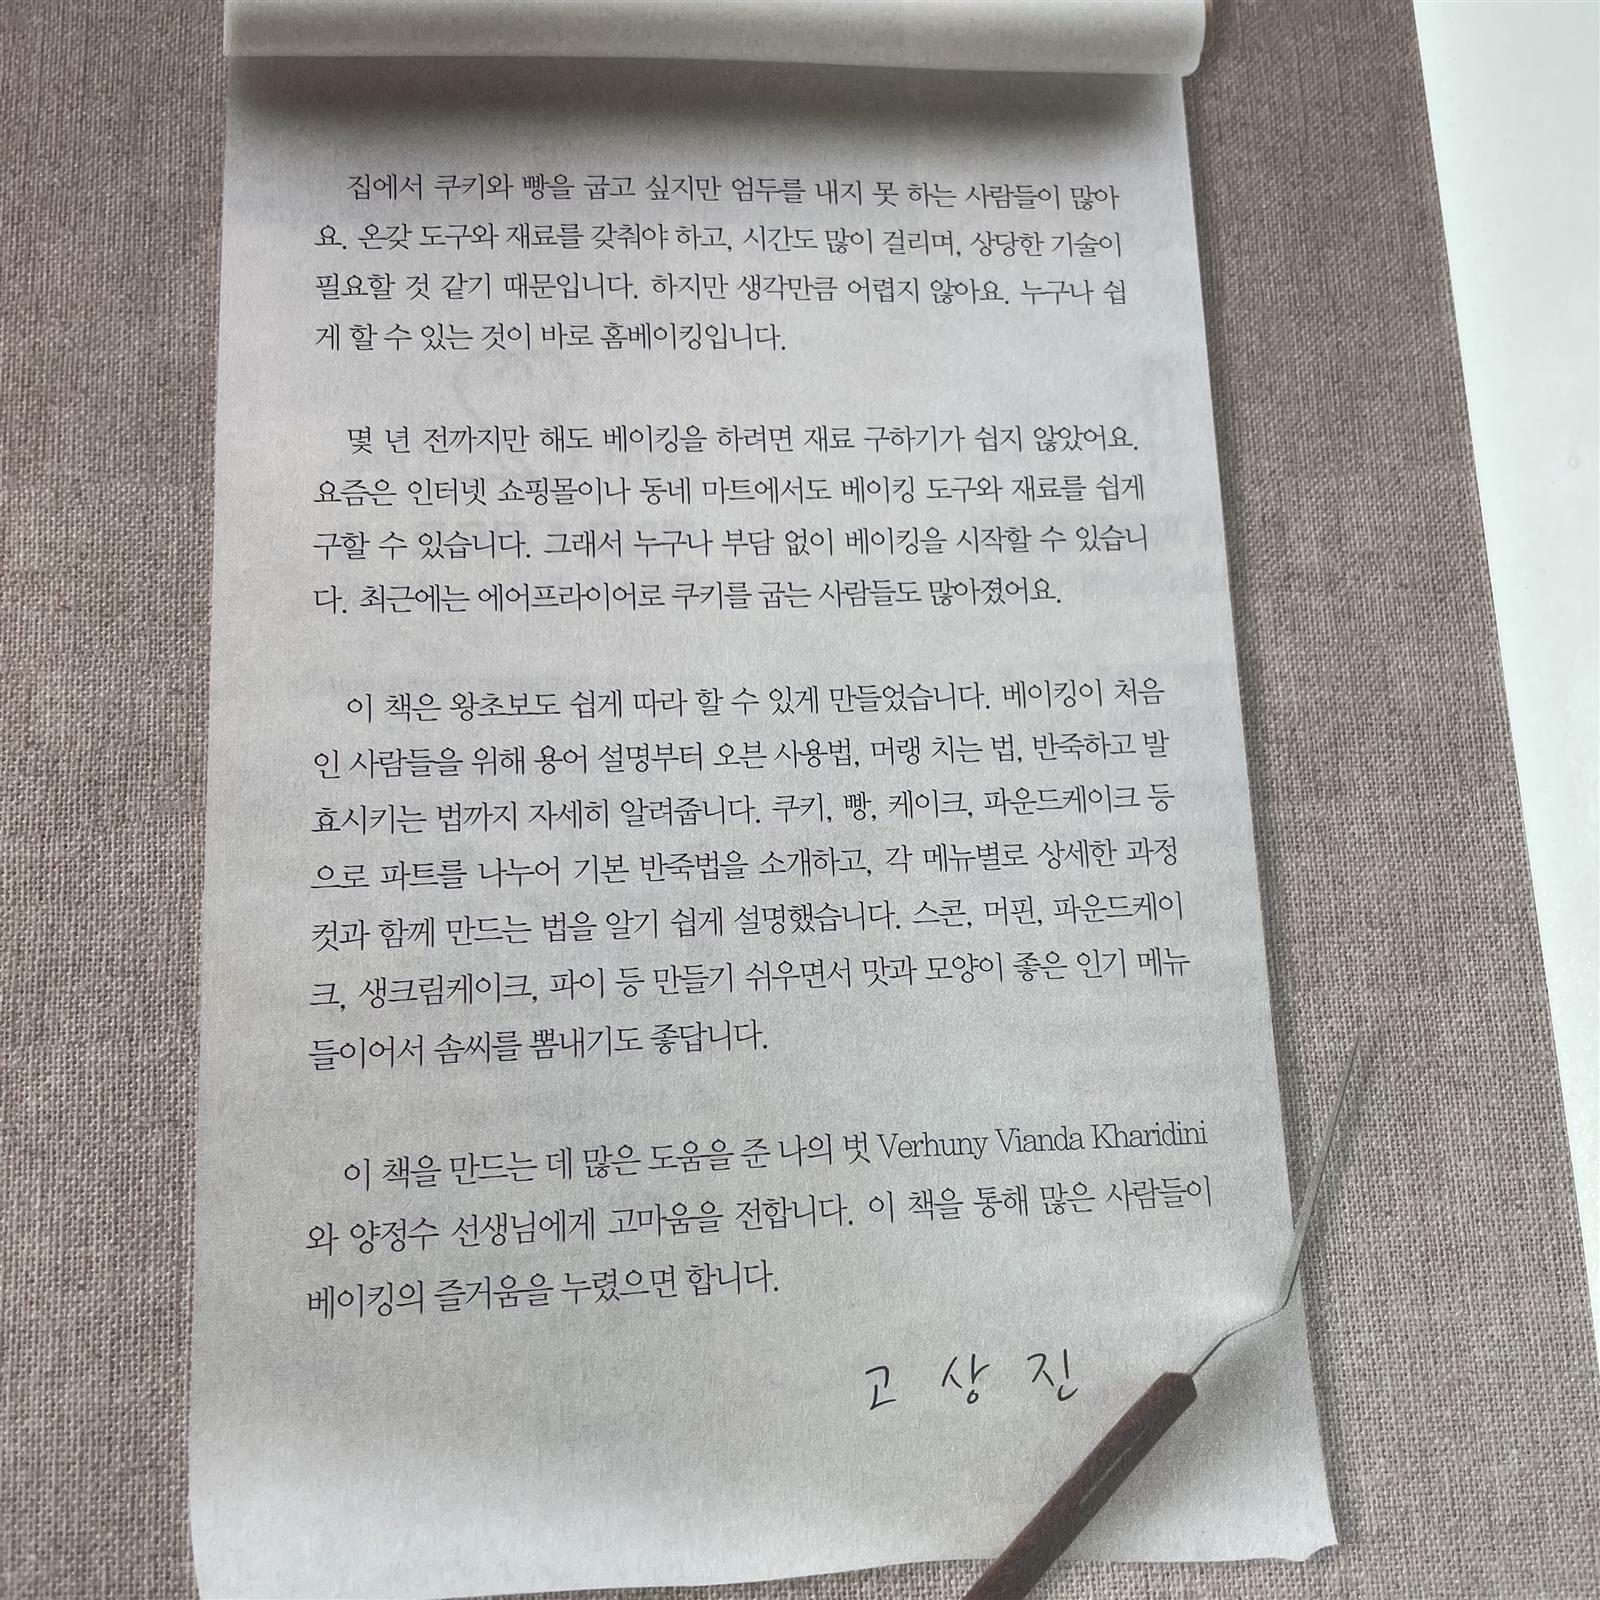 집에서 쿠키와 빵을 굽고 싶지만 엄두를 내지 못 하는 사람들이 많아
요. 온갖 도구와 재료를 갖춰야 하고, 시간도 많이 걸리며, 상당한 기술이
필요할 것 같기 때문입니다. 하지만 생각만큼 어렵지 않아요. 누구나 쉽
게 할 수 있는 것이 바로 홈베이킹입니다.
몇 년 전까지만 해도 베이킹을 하려면 재료 구하기가 쉽지 않았어요.
요즘은 인터넷 쇼핑몰이나 동네 마트에서도 베이킹 도구와 재료를 쉽게
구할 수 있습니다. 그래서 누구나 부담 없이 베이킹을 시작할 수 있습니
다. 최근에는 에어프라이어로 쿠키를 굽는 사람들도 많아졌어요.
이 책은 왕초보도 쉽게 따라 할 수 있게 만들었습니다. 베이킹이 처음
인 사람들을 위해 용어 설명부터 오븐 사용법, 머랭 치는 법, 반죽하고 발
효시키는 법까지 자세히 알려줍니다. 쿠키, 빵, 케이크, 파운드케이크 등
으로 파트를 나누어 기본 반죽법을 소개하고, 각 메뉴별로 상세한 과정
컷과 함께 만드는 법을 알기 쉽게 설명했습니다. 스콘, 머핀, 파운드케이
크, 생크림케이크, 파이 등 만들기 쉬우면서 맛과 모양이 좋은 인기 메뉴
들이어서 솜씨를 뽐내기도 좋답니다.
이 책을 만드는 데 많은 도움을 준 나의 벗 Verhuny Vianda Kharidini
와 양정수 선생님에게 고마움을 전합니다. 이 책을 통해 많은 사람들이
베이킹의 즐거움을 누렸으면 합니다.
고 상 진